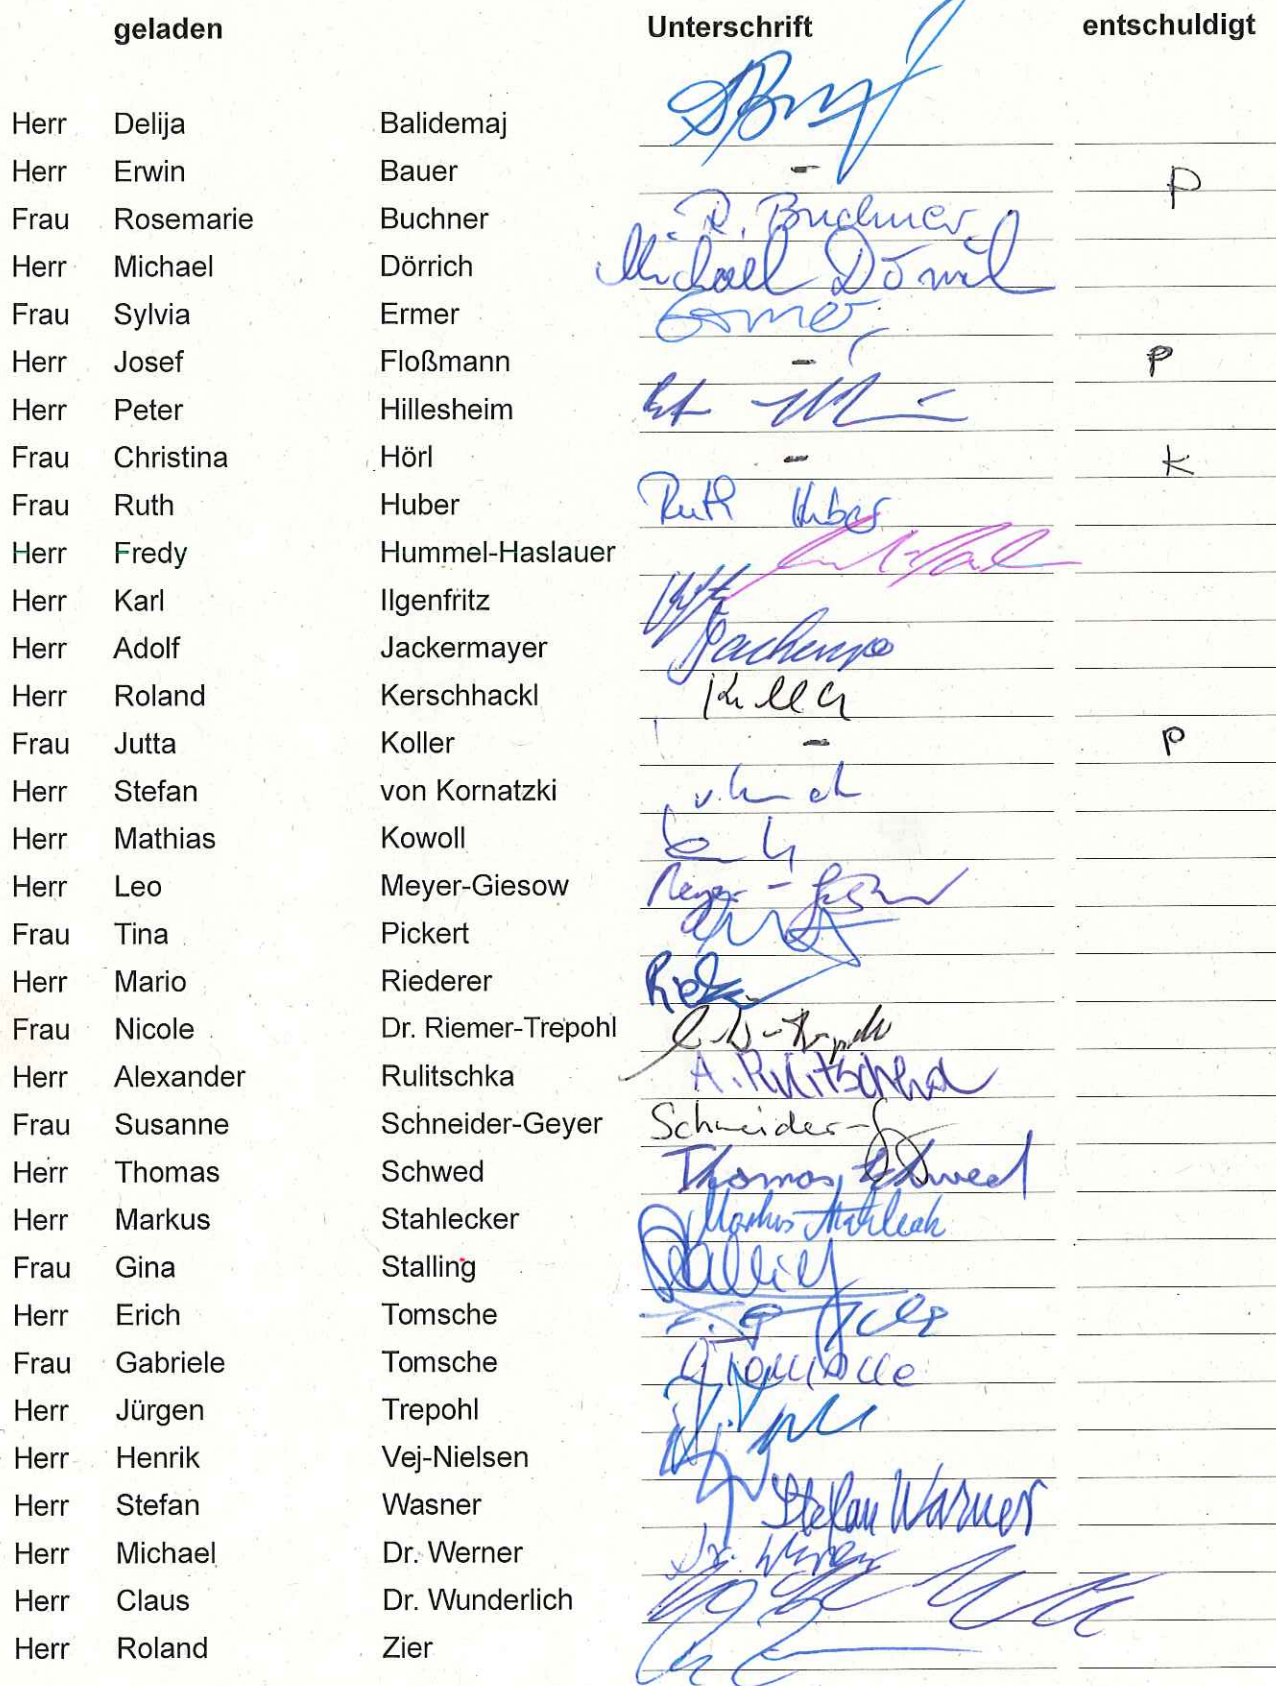 geladen Unterschrift entschuldigt
Herr Delija Balidemaj
Herr Erwin Bauer - P
Frau Rosemarie Buchner R. Buchner
Herr Michael Dörrich Michael Dörrich
Frau Sylvia Ermer Ermer
Herr Josef Floßmann - P
Herr Peter Hillesheim
Frau Christina Hörl - K
Frau Ruth Huber Ruth Huber
Herr Fredy Hummel-Haslauer
Herr Karl Ilgenfritz
Herr Adolf Jackermayer
Herr Roland Kerschhackl
Frau Jutta Koller - P
Herr Stefan von Kornatzki
Herr Mathias Kowoll
Herr Leo Meyer-Giesow
Frau Tina Pickert
Herr Mario Riederer
Frau Nicole Dr. Riemer-Trepohl
Herr Alexander Rulitschka A. Rulitschka
Frau Susanne Schneider-Geyer Schneider-G
Herr Thomas Schwed Thomas Schwed
Herr Markus Stahlecker Markus Stahleck
Frau Gina Stalling
Herr Erich Tomsche
Frau Gabriele Tomsche
Herr Jürgen Trepohl
Herr Henrik Vej-Nielsen
Herr Stefan Wasner Stefan Wasner
Herr Michael Dr. Werner Dr. Werner
Herr Claus Dr. Wunderlich
Herr Roland Zier